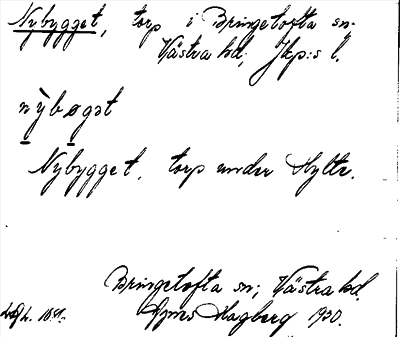 Nybygget, torp i Bringetofta sn.
Västra hd; Jkp:s l.
nỳbøgət
Nybygget, torp under Hylte.
Bringetofta sn; Västra hd.
Agnes Hagberg 1930.